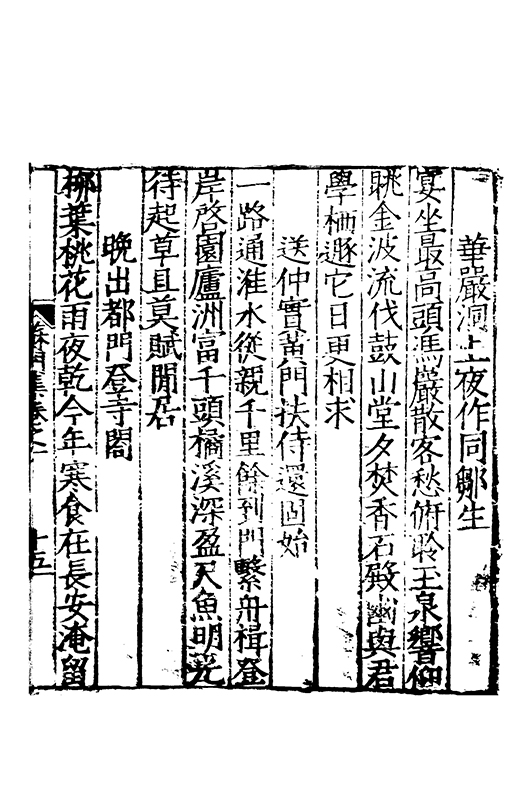 華嚴洞上夜作同鄒生
宴坐最高頭馮巖散客愁俯聆玉泉響仰
眺金波流伐鼓山堂夕焚香石殿幽與君
學栖遯它日更相求
送仲實黃門扶侍還固始
一路通淮水從親千里餘到門繫舟楫登
岸啓園廬洲富千頭橘溪深盈尺魚明光
待起草且莫賦閒居
晚出都門登寺閣
柳葉桃花雨夜乾今年寒食在長安淹留
蘇門集卷之二
十五